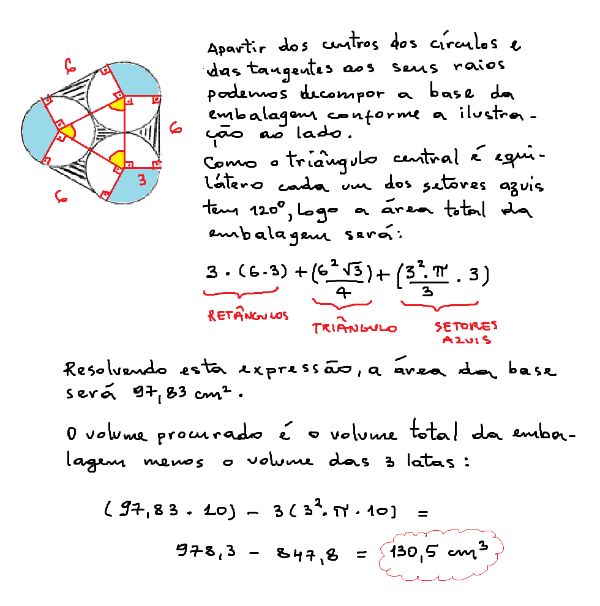 6
6
6
3
Apartir dos centros dos círculos e
das tangentes aos seus raios
podemos decompor a base da
embalagem conforme a ilustra-
ção ao lado.
Como o triângulo central é equi-
látero cada um dos setores azuis
tem 120°, logo a área total da
embalagem será:
3 · (6·3) + (6²√3/4) + (3²·π/3 · 3)
RETÂNGULOS
TRIÂNGULO
SETORES
AZUIS
Resolvendo esta expressão, a área da base
será 97,83 cm².
O volume procurado é o volume total da emba-
lagem menos o volume das 3 latas:
(97,83 · 10) - 3(3²·π·10) =
978,3 - 847,8 = 130,5 cm³